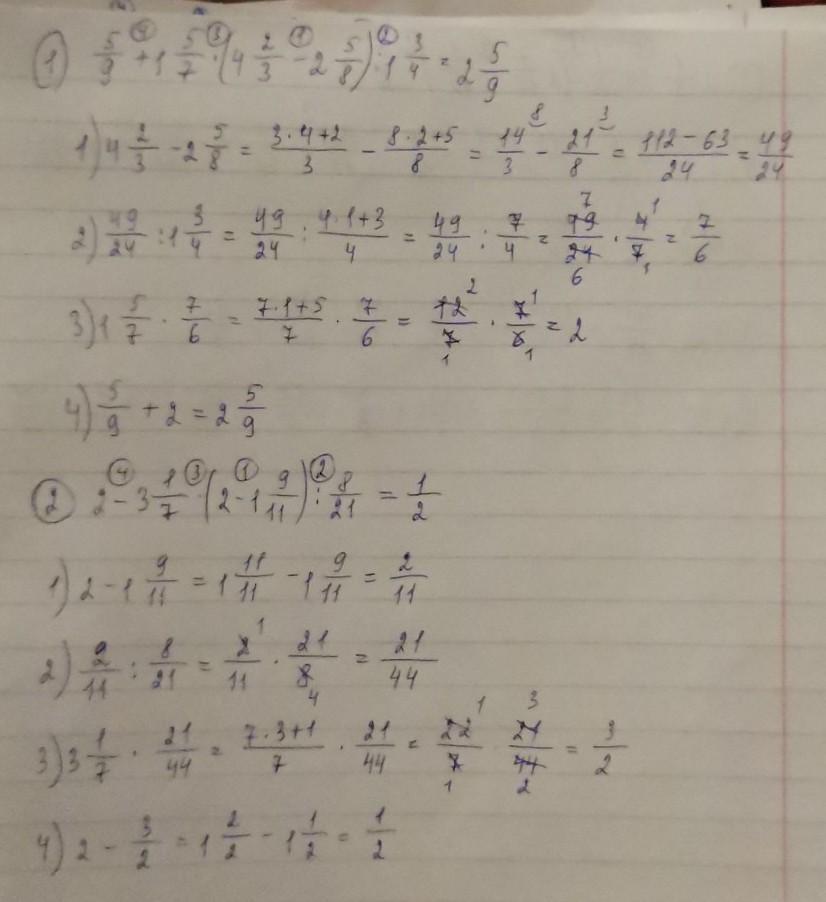 ① 5/9 +④ 1 5/7 ·③ (4 2/3 -① 2 5/8) :② 1 3/4 = 2 5/9
1) 4 2/3 - 2 5/8 = (3·4+2)/3 - (8·2+5)/8 = 14/3 ⁸ - 21/8 ³ = (112-63)/24 = 49/24
2) 49/24 : 1 3/4 = 49/24 : (4·1+3)/4 = 49/24 : 7/4 = 49⁷/24₆ · 4¹/7₁ = 7/6
3) 1 5/7 · 7/6 = (7·1+5)/7 · 7/6 = 12²/7₁ · 7¹/6₁ = 2
4) 5/9 + 2 = 2 5/9
② 2 -④ 3 1/7 ·③ (2 -① 1 9/11) :② 8/21 = 1/2
1) 2 - 1 9/11 = 1 11/11 - 1 9/11 = 2/11
2) 2/11 : 8/21 = 2¹/11 · 21/8₄ = 21/44
3) 3 1/7 · 21/44 = (7·3+1)/7 · 21/44 = 22¹/7₁ · 21³/44₂ = 3/2
4) 2 - 3/2 = 1 2/2 - 1 1/2 = 1/2